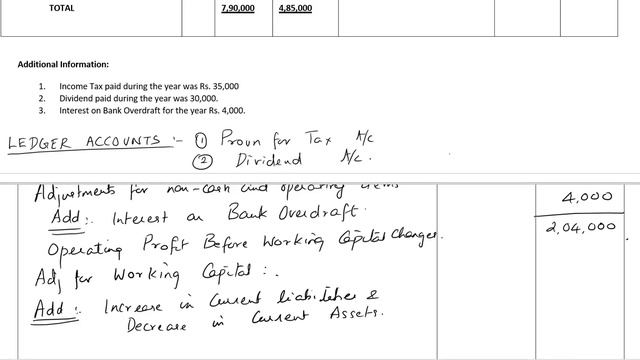 TOTAL 7,90,000 4,85,000
Additional Information:
1. Income Tax paid during the year was Rs. 35,000
2. Dividend paid during the year was 30,000.
3. Interest on Bank Overdraft for the year Rs. 4,000.
LEDGER ACCOUNTS :- ① Provn for Tax A/c
② Dividend A/c.
Adjustments for non-cash and operating items
Add :. Interest on Bank Overdraft. 4,000
Operating Profit Before Working Capital Changes. 2,04,000
Adj for Working Capital :.
Add :. Increase in Current liabilities &
Decrease in Current Assets.